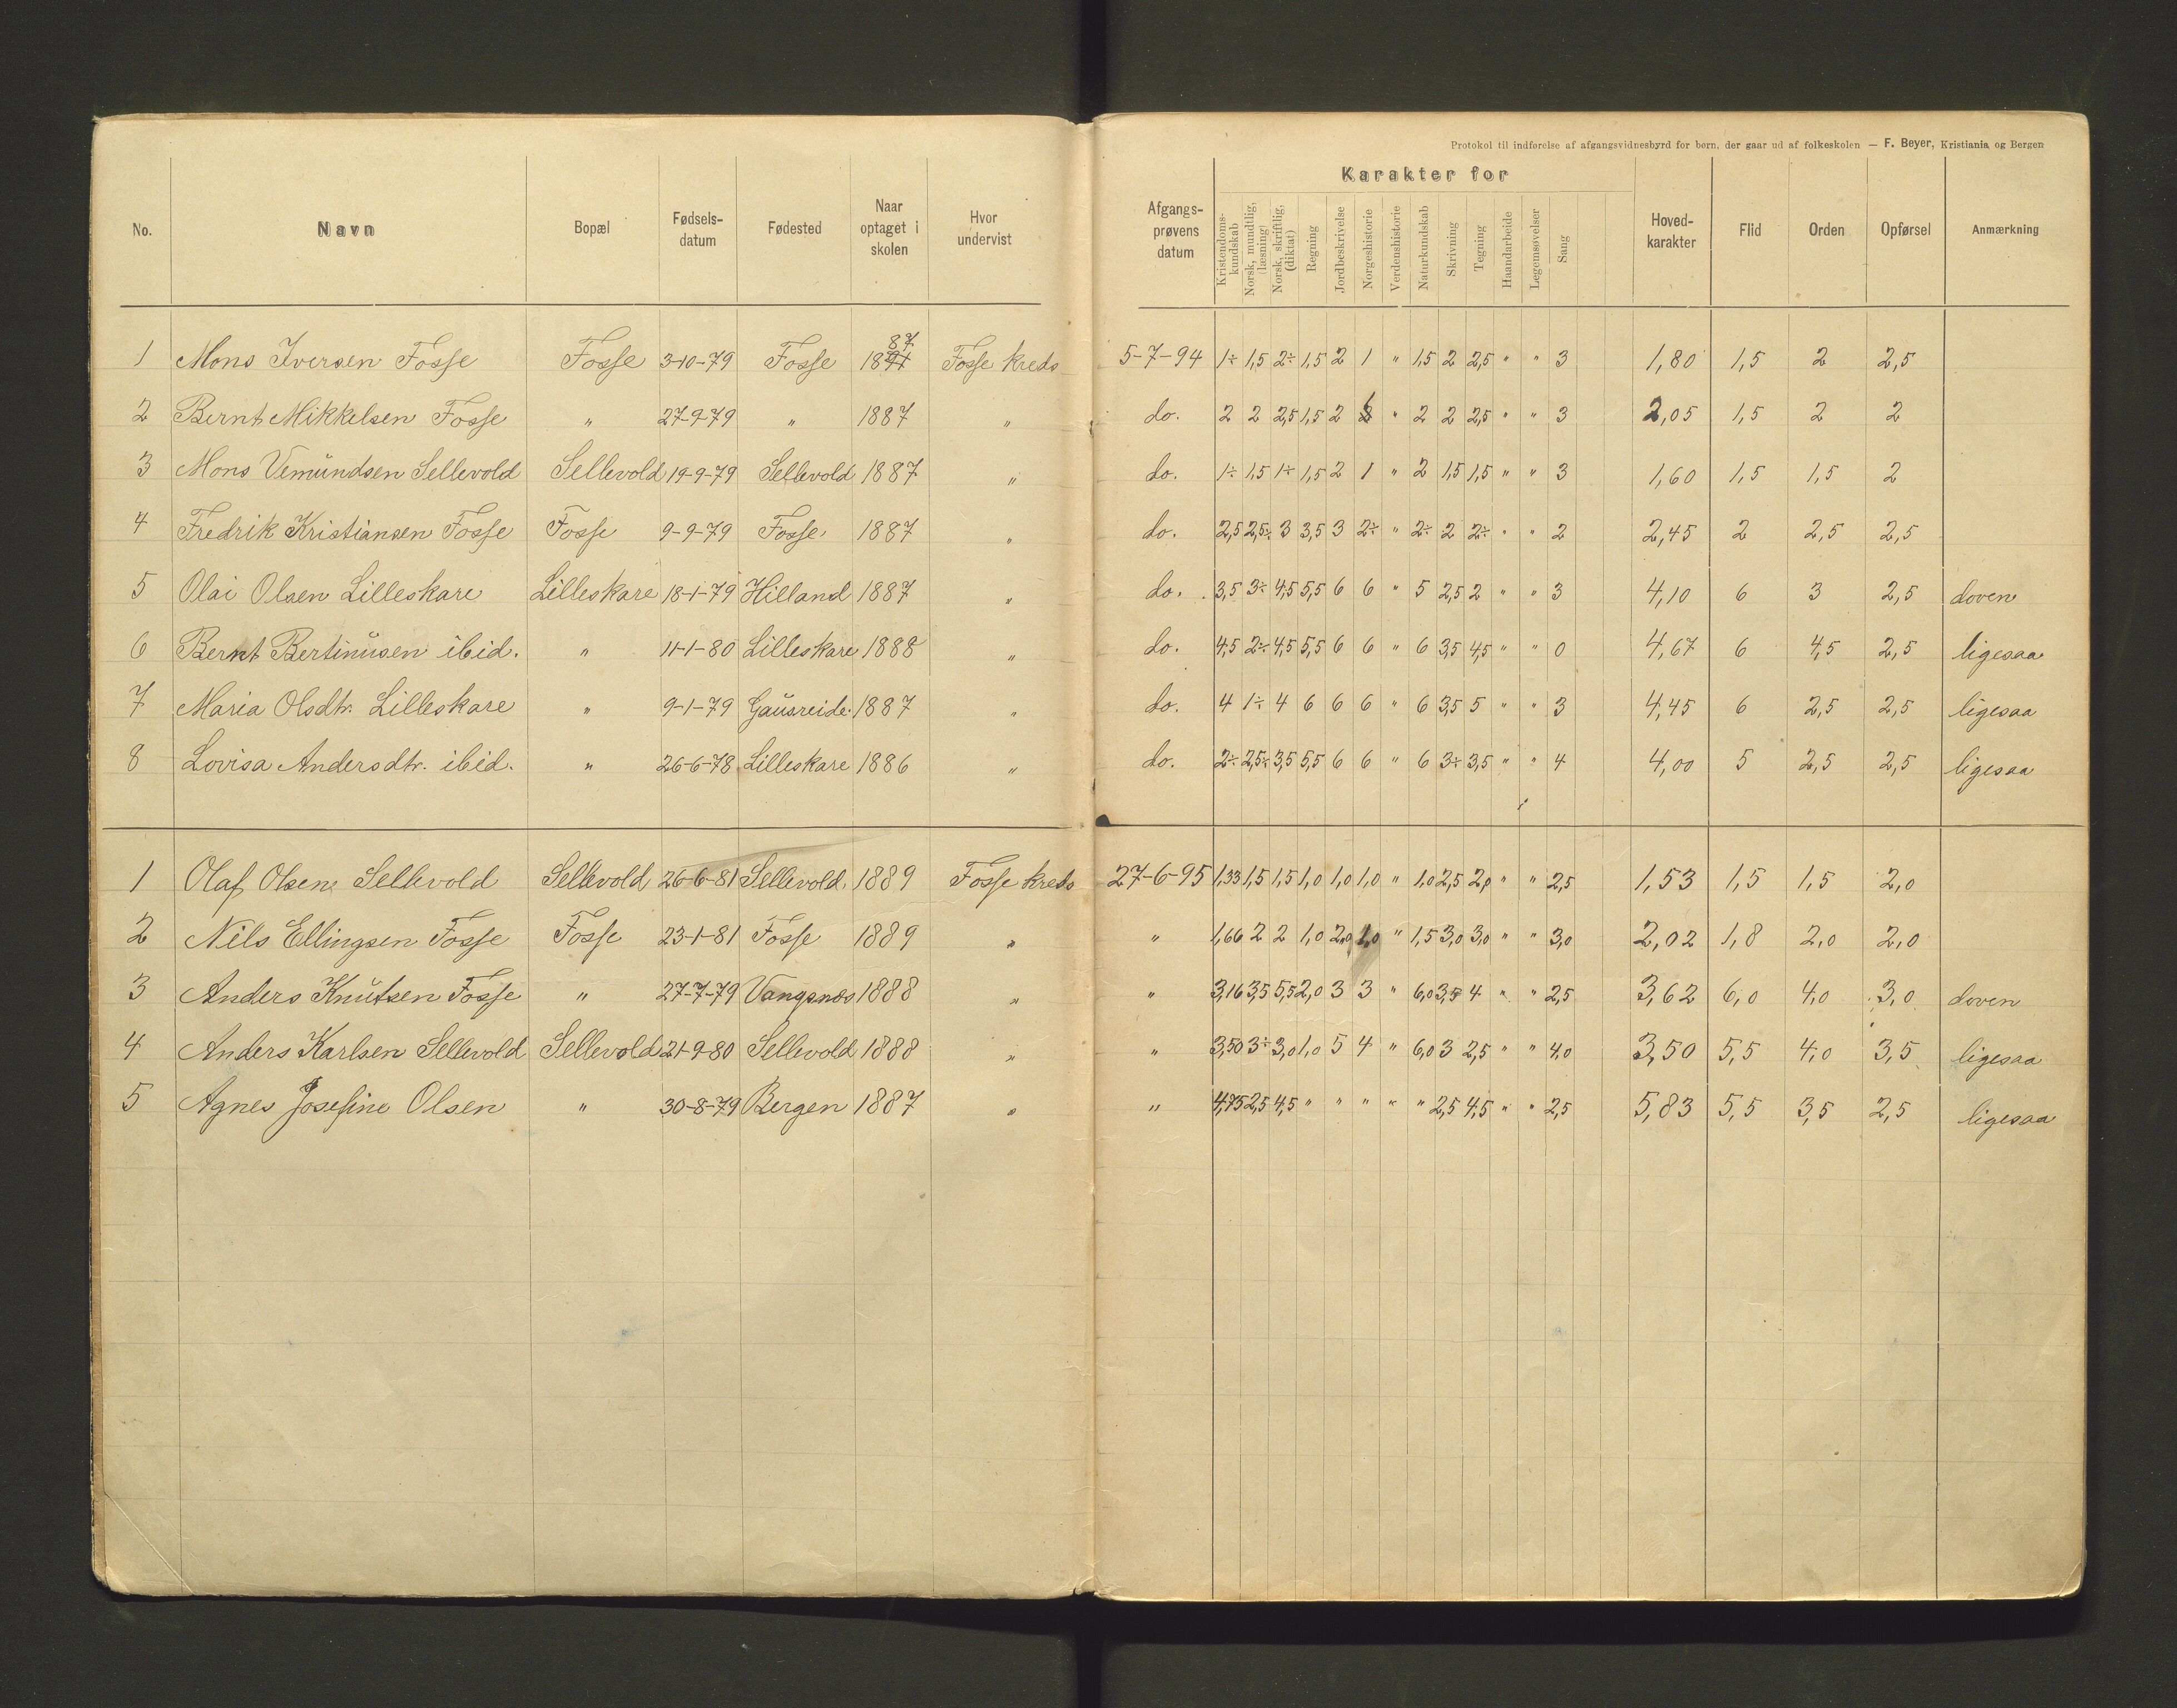 Protokol til indførelse af afgangsvidnesbyrd for børn, der gaar ud af folkeskolen — F. Beyer, Kristiania og Bergen
No. Navn Bopæl Fødsels-datum Fødested Naar optaget i skolen Hvor undervist Afgangs-prøvens datum Karakter for Kristendoms-kundskab Norsk, mundtlig, (læsning) Norsk, skriftlig, (diktat) Regning Jordbeskrivelse Norgeshistorie Verdenshistorie Naturkundskab Skrivning Tegning Haandarbeide Legemsøvelser Sang Hoved-karakter Flid Orden Opførsel Anmærkning
1 Mons Iversen Fosse Fosse 3-10-79 Fosse 1887 Fosse kreds 5-7-94 1÷ 1,5 2÷ 1,5 2 1 " 1,5 2 2,5 " " 3 1,80 1,5 2 2,5
2 Bernt Mikkelsen Fosse " 27-9-79 " 1887 " do. 2 2 2,5 1,5 2 " 2 2 2,5 " " 3 2,05 1,5 2 2
3 Mons Vemundsen Sellevold Sellevold 19-9-79 Sellevold 1887 " do. 1÷ 1,5 1÷ 1,5 2 1 " 2 1,5 1,5 " " 3 1,60 1,5 1,5 2
4 Fredrik Kristiansen Fosse Fosse 9-9-79 Fosse 1887 " do. 2,5 2,5÷ 3 3,5 3 2÷ " 2÷ 2 2÷ " " 2 2,45 2 2,5 2,5
5 Olai Olsen Lilleskare Lilleskare 18-1-79 Hilland 1887 " do. 3,5 3÷ 4,5 5,5 6 6 " 5 2,5 2 " " 3 4,10 6 3 2,5 doven
6 Bernt Bertinusen ibid. " 11-1-80 Lilleskare 1888 " do. 4,5 2÷ 4,5 5,5 6 6 " 6 3,5 4,5 " " 0 4,67 6 4,5 2,5 ligesaa
7 Maria Olsdtr. Lilleskare " 9-1-79 Gausreide 1887 " do. 4 1÷ 4 6 6 6 " 6 3,5 5 " " 3 4,45 6 2,5 2,5 ligesaa
8 Lovisa Andersdtr. ibid. " 26-6-78 Lilleskare 1886 " do. 2÷ 2,5÷ 3,5 5,5 6 6 " 6 3÷ 3,5 " " 4 4,00 5 2,5 2,5 ligesaa
1 Olaf Olsen Sellevold Sellevold 26-6-81 Sellevold 1889 Fosse kreds 27-6-95 1,33 1,5 1,5 1,0 1,0 1,0 " 1,0 2,5 2,0 " " 2,5 1,53 1,5 1,5 2,0
2 Nils Ellingsen Fosse Fosse 23-1-81 Fosse 1889 " " 1,66 2 2 1,0 2,0 1,0 " 1,5 3,0 3,0 " " 3,0 2,02 1,8 2,0 2,0
3 Anders Knutsen Fosse " 27-7-79 Vangsnes 1888 " " 3,16 3,5 5,5 2,0 3 3 " 6,0 3,5 4 " " 2,5 3,62 6,0 4,0 3,0 doven
4 Anders Karlsen Sellevold Sellevold 21-9-80 Sellevold 1888 " " 3,50 3÷ 3,0 1,0 5 4 " 6,0 3 2,5 " " 4,0 3,50 5,5 4,0 3,5 ligesaa
5 Agnes Josefine Olsen " 30-8-79 Bergen 1887 " " 4,75 2,5 4,5 " " " " " 2,5 4,5 " " 2,5 5,83 5,5 3,5 2,5 ligesaa